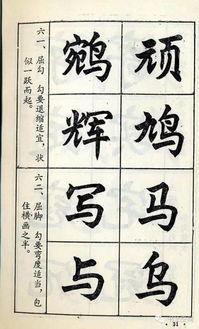 顽
鸠
马
乌
鹓
辉
写
与
六一、屈勾 勾要退缩适宜，状
似一跃而起。
六二、屈脚 勾要弯度适当，包
住横画之半。
· 31 ·